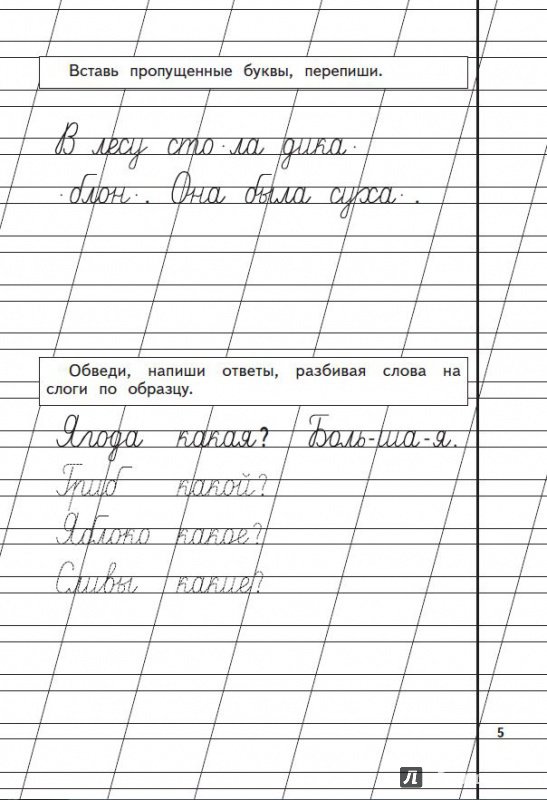 Вставь пропущенные буквы, перепиши.
В лесу сто·ла дика·
·блон·. Она была суха·.
Обведи, напиши ответы, разбивая слова на
слоги по образцу.
Ягода какая? Боль-ша-я.
Гриб какой?
Яблоко какое?
Сливы какие?
5